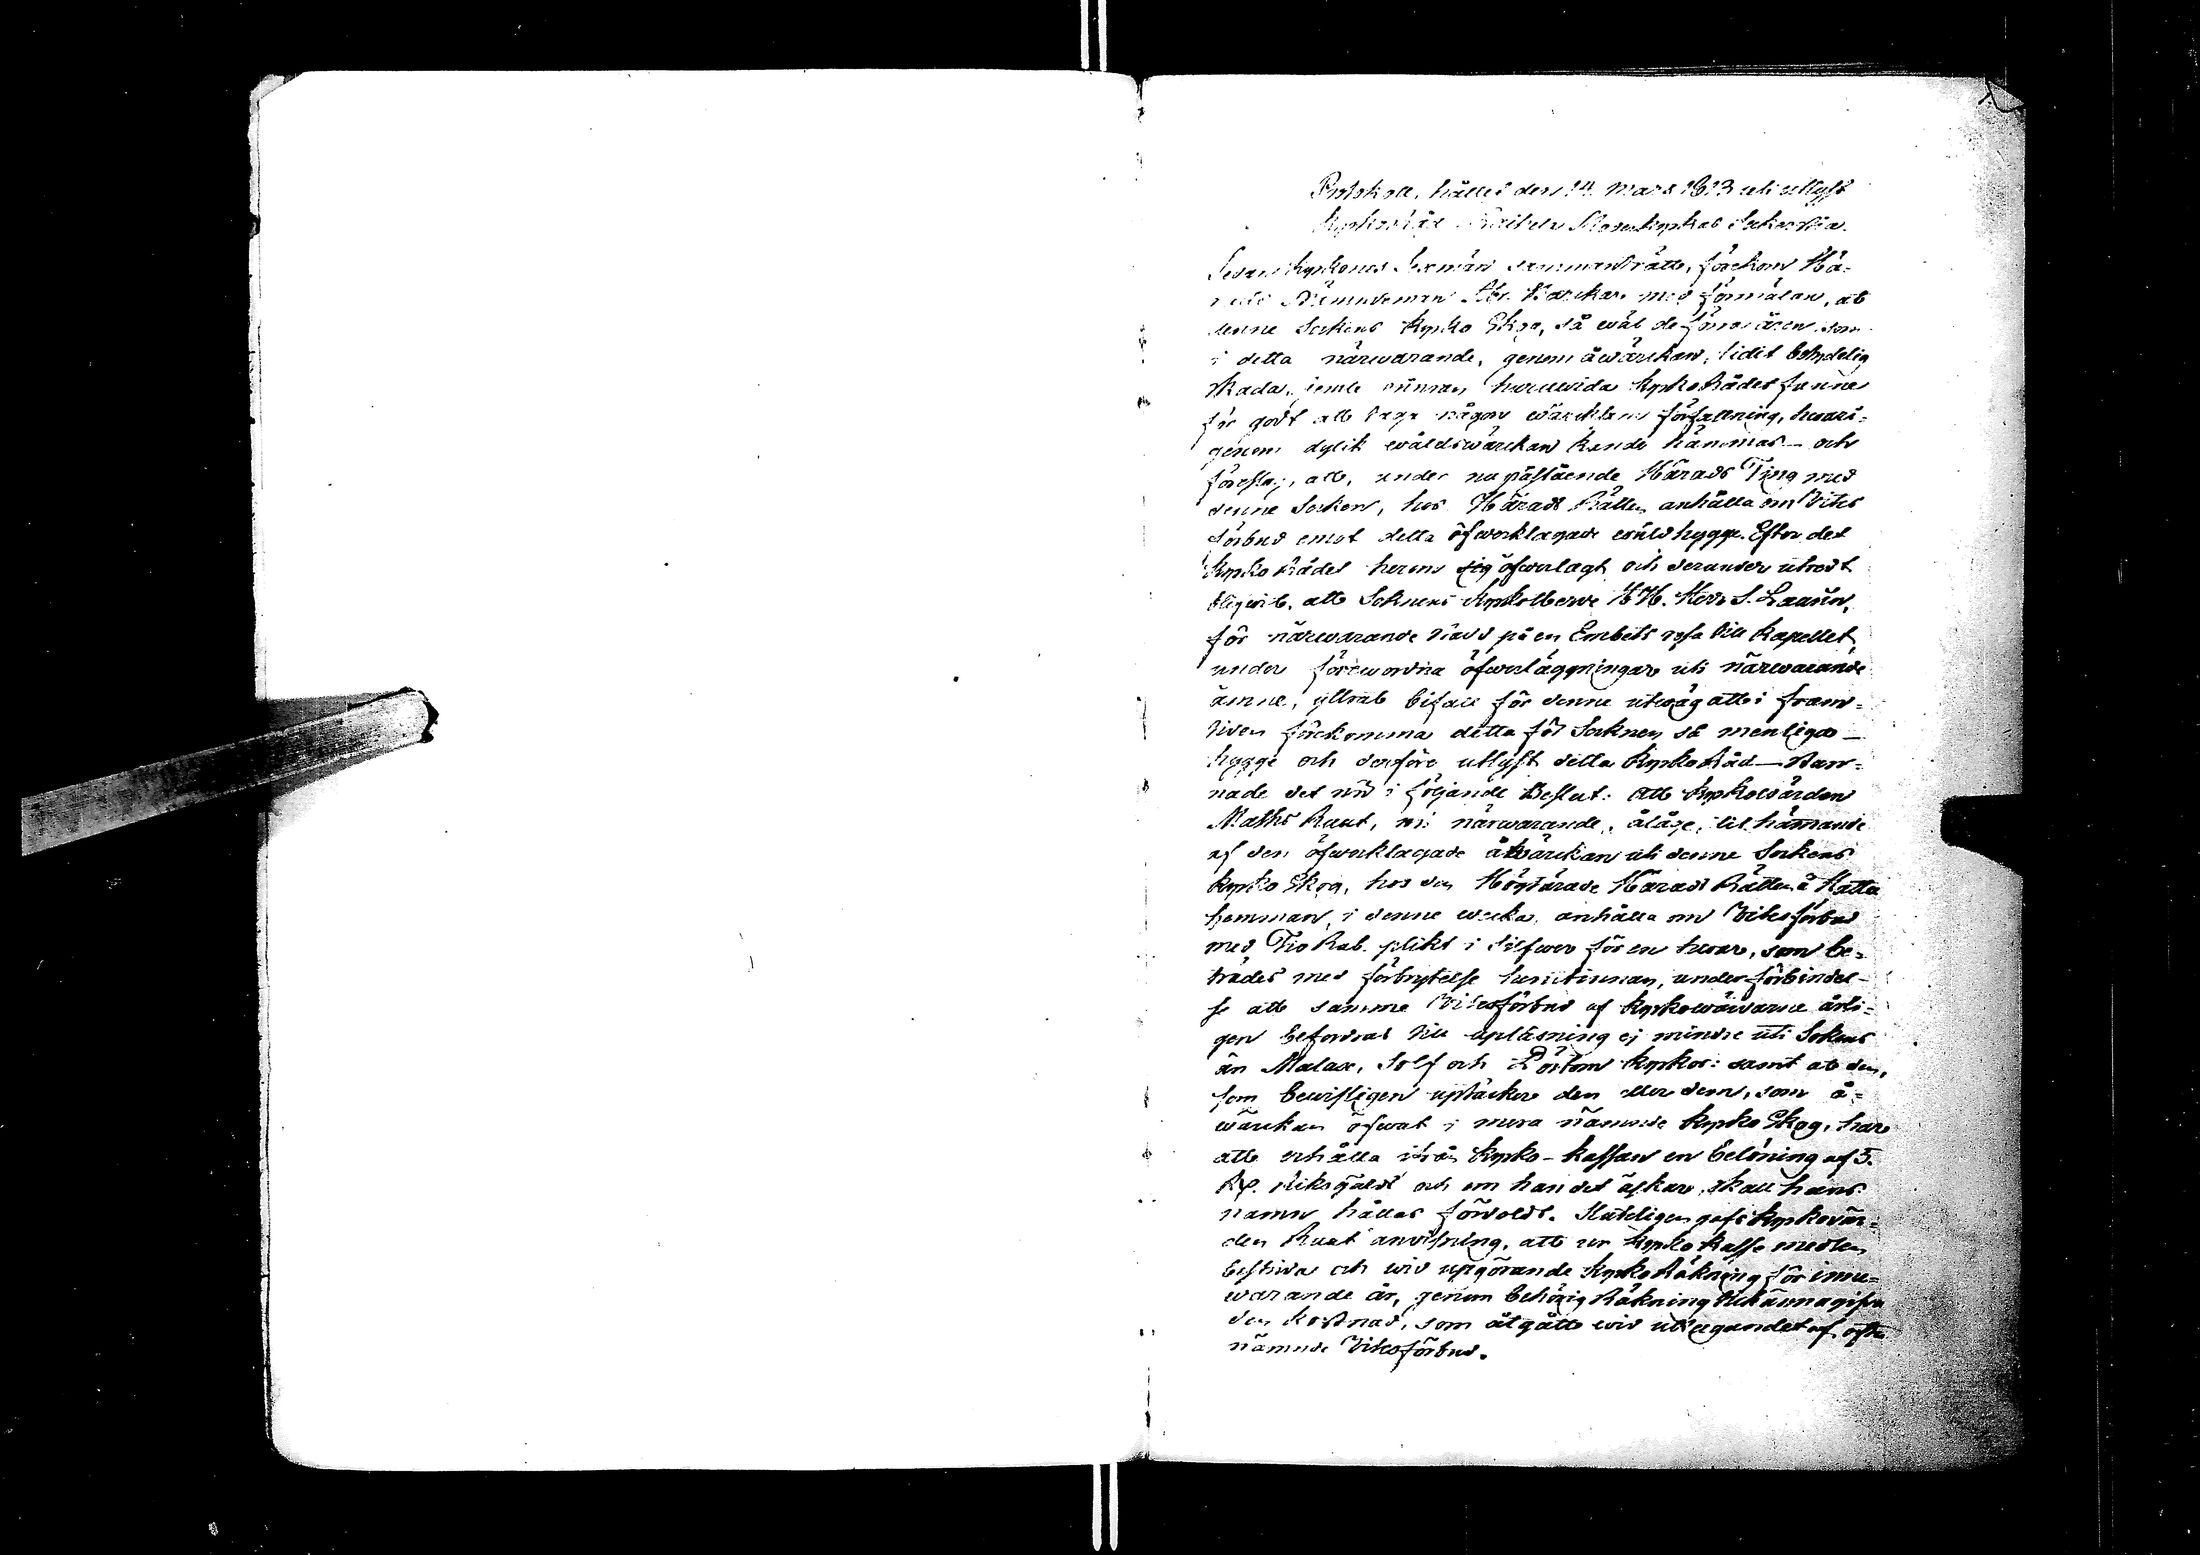 Protokoll, hållit den 14. Mars 1813 uti utlyst
KyrkoRåd Moderkyrkas Sacristia.
Sedan Kyrkones Sexmän sammanträdt, förekom Hä-
Nämndeman med förmälan, at
denne Sockens Kyrko Skog, så wäl de förra åren som
i detta närwarande, genom åwärkan, lidit betydelig
skada, jemte hurudwida KyrkoRådet funne
för godt att taga någon wärcksam författning, hwari-
genom dylik wåldswärckan kunde hämmas — och
förslag, att, under nu påstående Härads Ting med
denne Socken, hos Härads Rätten anhålla om Vites
förbud emot detta öfwerklagade wåldhygge. Efter det
KyrkoRådet herom sig öfwerlagt och derunder utredt
blifwit, att Socknens Kyrkoherde HH. Herr S.
för närwarande stadd på en Embets resa till Kapellet,
under förewordna öfwerläggningar uti närwarande
ämne, yttrat bifall för denne utwäg att i fram-
tiden förekomma detta för Socknen så menliga —
hygge och derföre utlyst detta KyrkoRåd — Stan-
nade det nu i följande Beslut: Att Kyrkowärden
Matts Ruut, nu närwarande, ålåge, til hämande
af den öfwerklagade åwärckan uti denne Sockens
Kyrko Skog, hos den Högtärade Härads Rätten å Hatta
hemman, i denne wecka, anhålla om Vitesförbud
med Tio Rub. plikt i Silfwer för en hwar, som be-
trädes med förbrytelse häremot, under förbindel-
se att samma Vitesförbud af Kyrkowärdarne årli-
gen befordras till upläsning ej mindre uti Sokens
än Malax, Solf och Pörtom Kyrkor: samt at den,
som bewisligen uptäcker den eller dem, som å-
wärckan öfwat i mera nämnde Kyrko Skog, har
att erhålla ifrån Kyrko-Kassan en belöning af 5.
Rd. Riksgälds och om han det äskar, skall hans
namn hållas fördoldt. Slutligen gafs Kyrkowär-
den Ruut anwisning, att ur Kyrko Kasse medlen
bestrida och wid upgörande KyrkoRäkning för inne-
warande år, genom behörig Räkning tillkännagifva
den kostnad, som åtgått wid uttagandet af ofta
nämnde Vitesförbud.